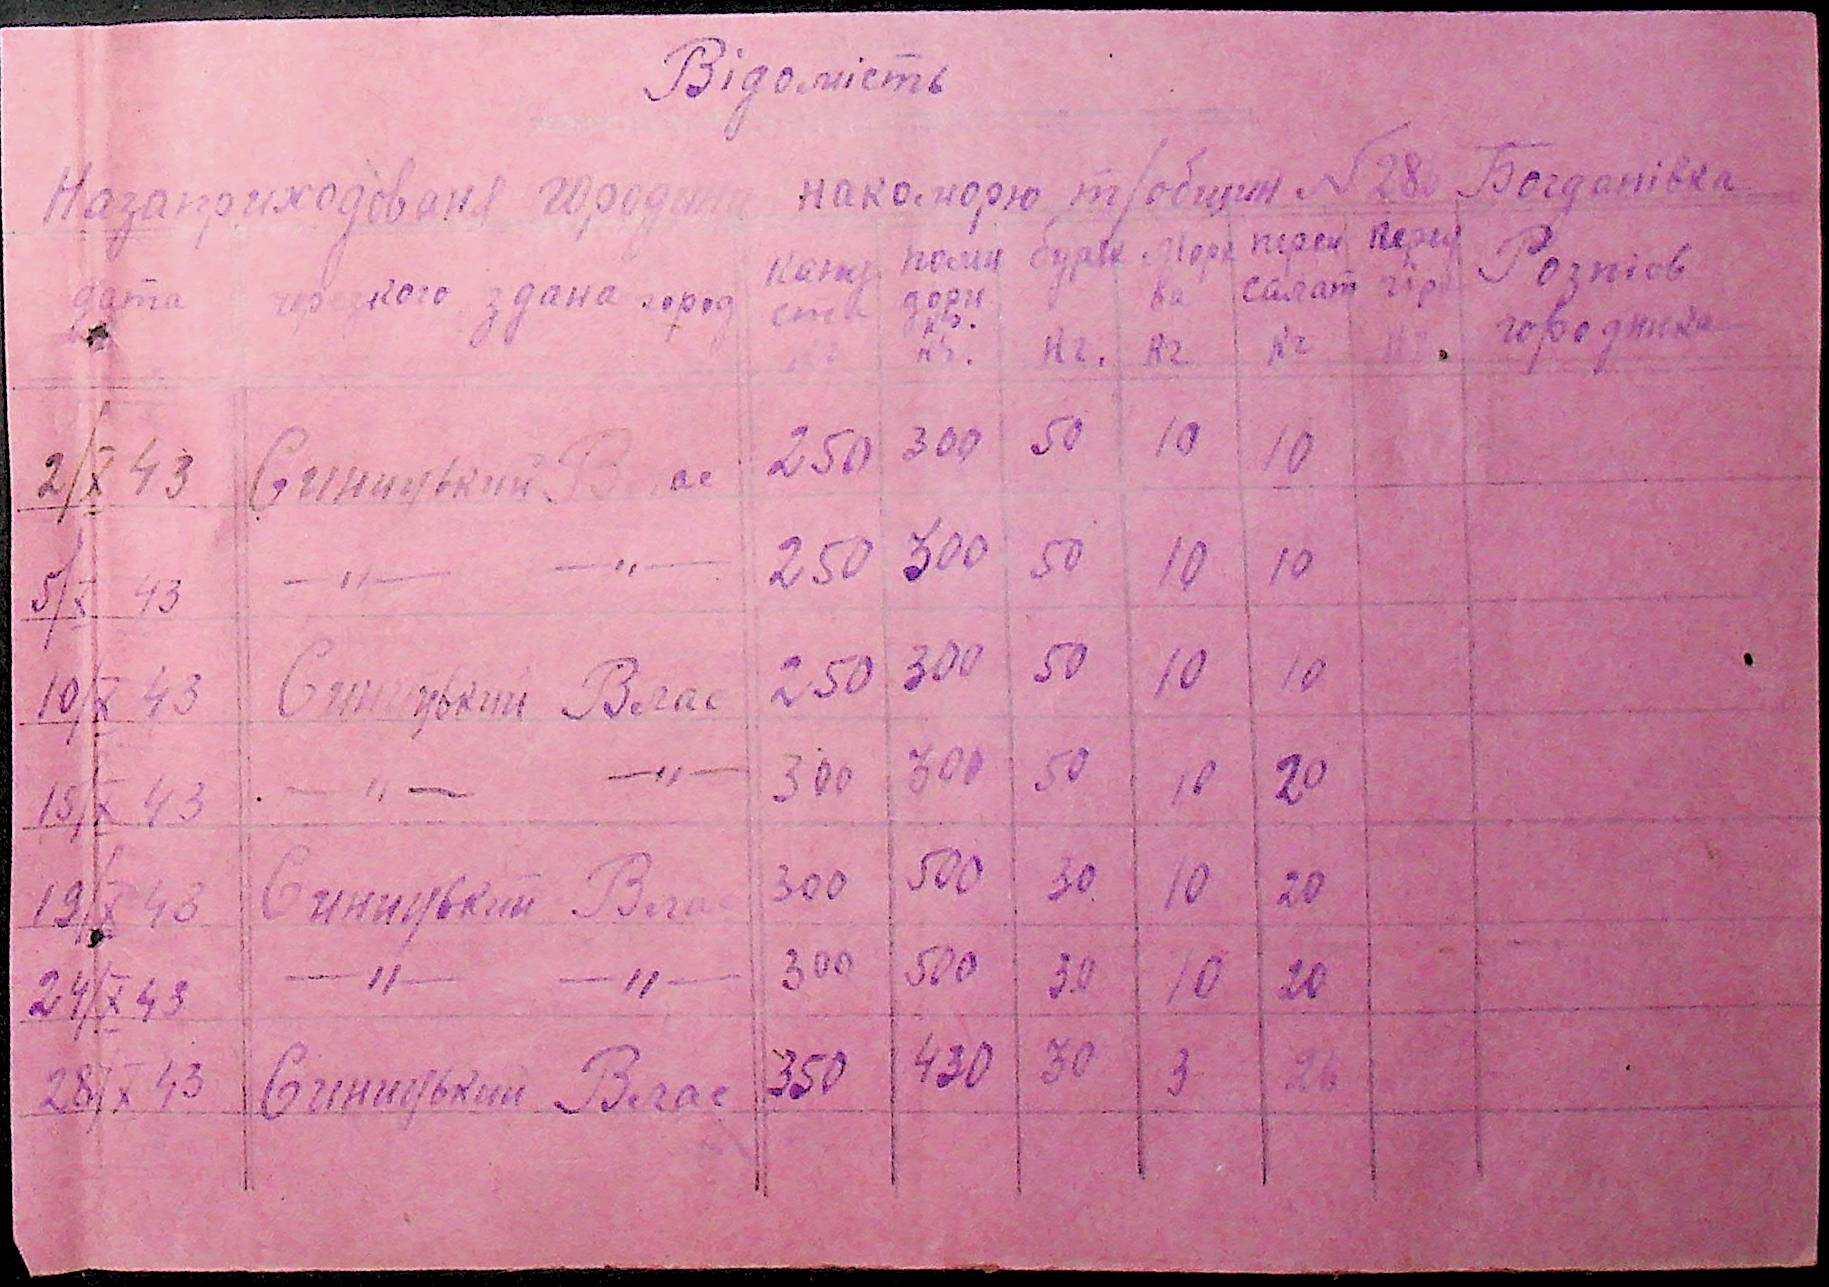 Відомість
Назаприходованя городини накоморю т/общин №28 Богданівка
дата
через кого здана город
капу
ста
кг
поми
дори
кг.
кг.
буряк
кг.
Морк
ва
кг
перец
салат
кг
Перец
гір
кг
Розпісв
городника
2/X 43 Синицький Влас 250 300 50 10 10
5/X 43 —"— —"— 250 300 50 10 10
10/X 43 Синицький Влас 250 300 50 10 10
15/X 43 —"— —"— 300 300 50 10 20
19/X 43 Синицький Влас 300 500 30 10 20
24/X 43 —"— —"— 300 500 30 10 20
28/X 43 Синицький Влас 350 430 30 3 26